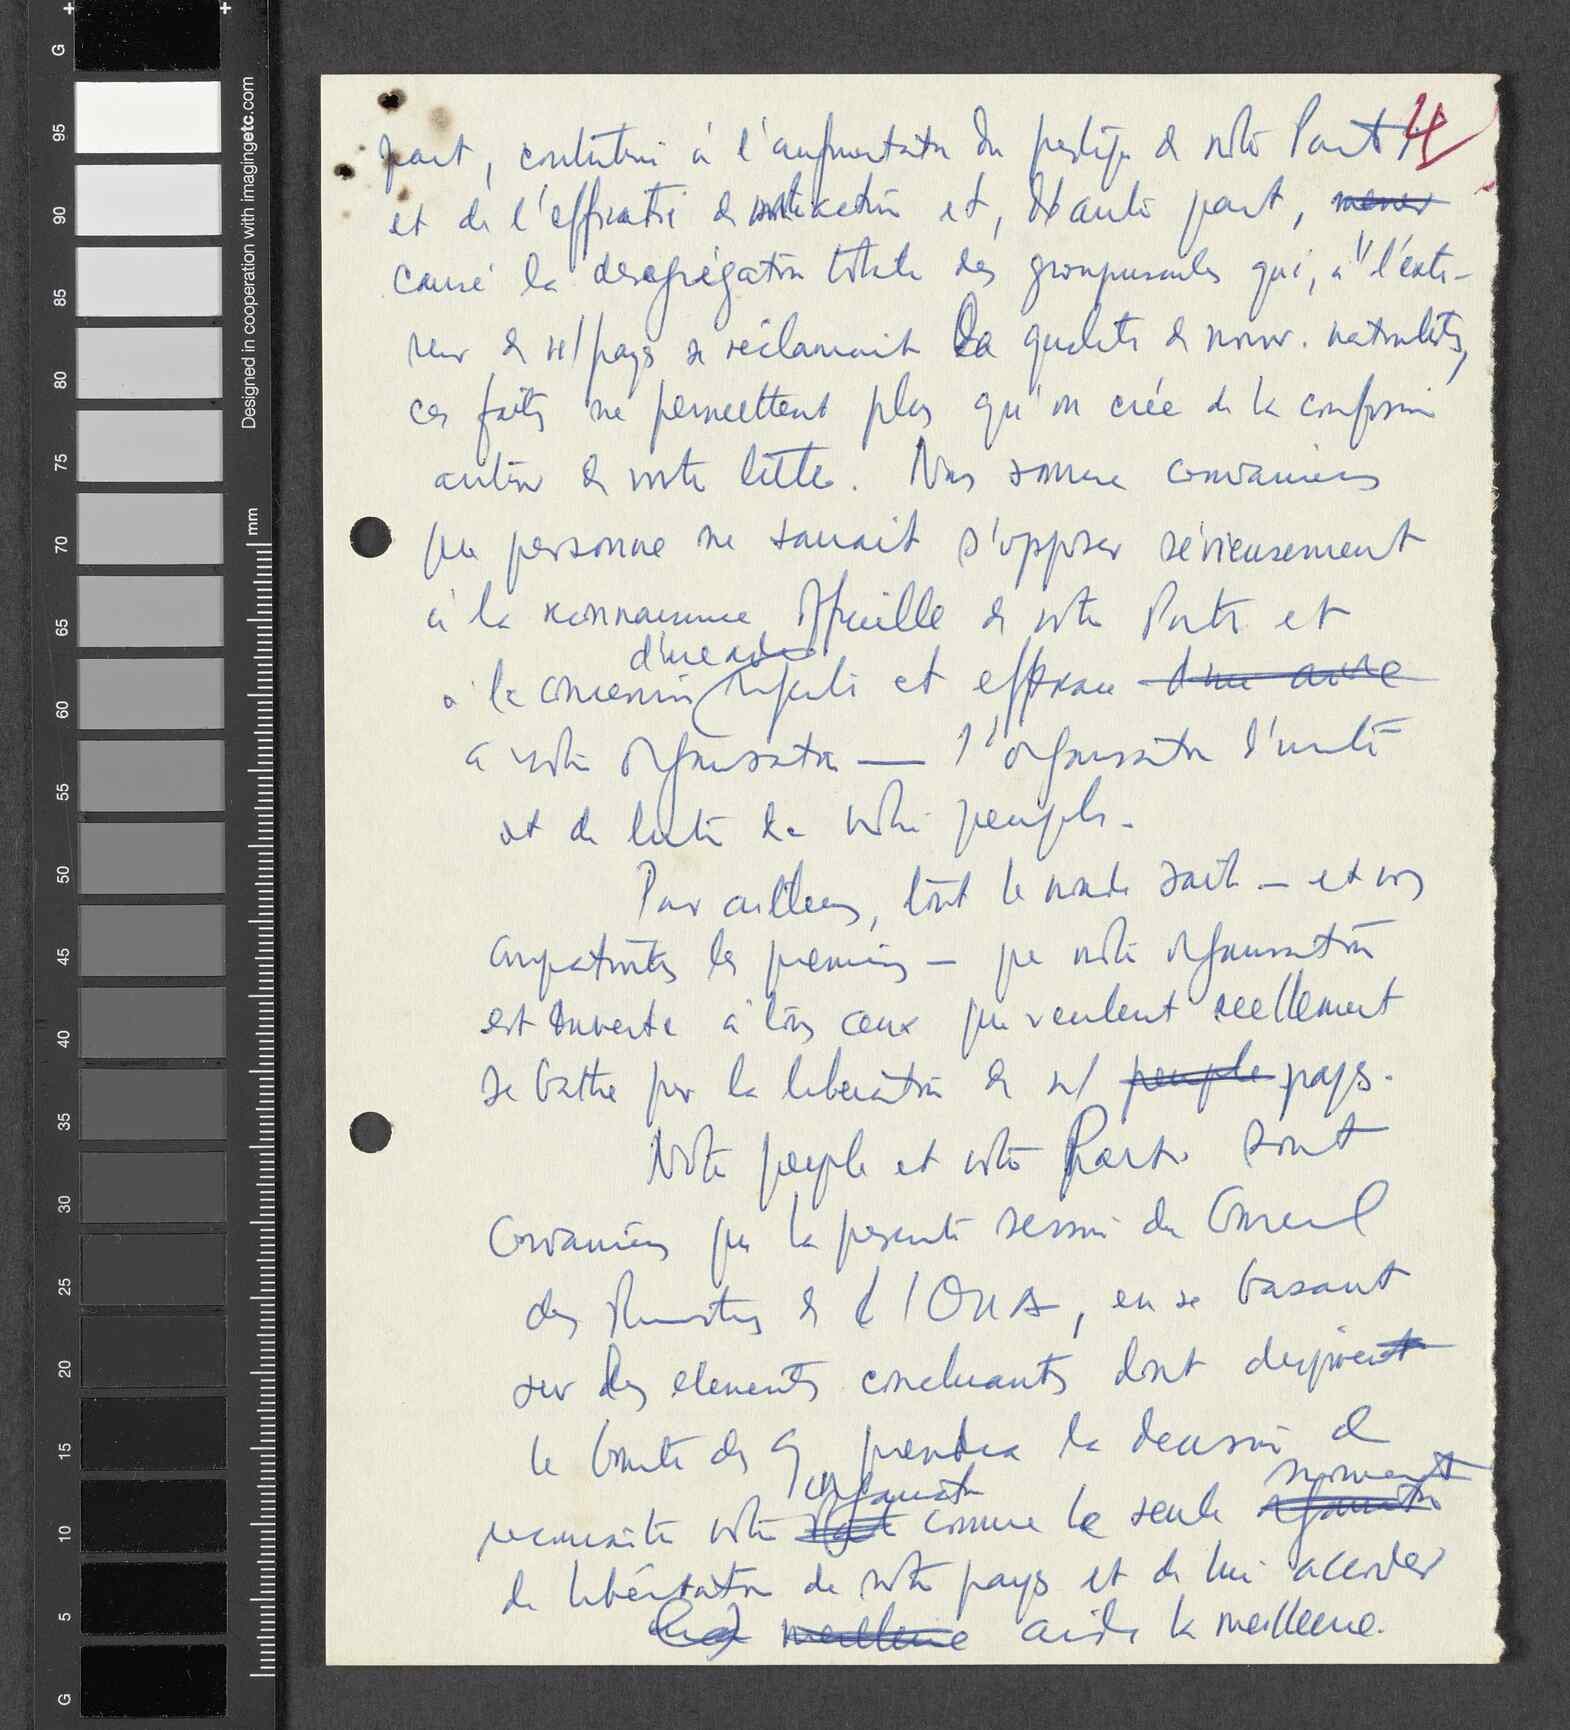 4
part, contribué à l'augmentation du prestige de notre Parti
et de l'efficacité de notre action et, d'autre part, mener
causé la desagrégation totale des groupements qui, à l'exté-
rieur de n/ pays se réclamait la qualité de mouv. nationalistes,
ces faits ne permettent plus qu'on crée de la confusion
autour de notre lutte. Nous sommes convaincus
que personne ne saurait s'opposer sérieusement
à la reconnaissance officielle de notre Parti et
d'une aide
à la concession régulière et efficace d'une aide
a notre organisation — l'organisation d'unité
et de lutte de notre peuple.
Par ailleurs, tout le monde sait — et nos
compatriotes les premiers — que notre organisation
est ouverte à tous ceux qui veulent reellement
se battre pour la libération de n/ peuple pays.
Notre peuple et notre Parti sont
convaincus que la presente session du Conseil
des Ministres de l'OUA, en se basant
sur des elements concluants dont disposent
le Comité des 9 prendra la decision de
organisation mouvement
reconnaitre notre comme le seule organisation
de libération de notre pays et de lui accorder
meilleure aide la meilleure.
G 95 90 85 80 75 70 65 60 55 50 45 40 35 30 25 20 15 10 5 G
mm
Designed in cooperation with imagingetc.com